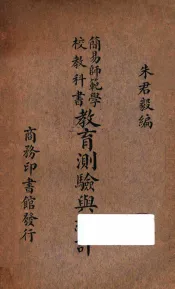 朱君毅編
簡易師範學
校教科書
教育測驗與
商務印書館發行